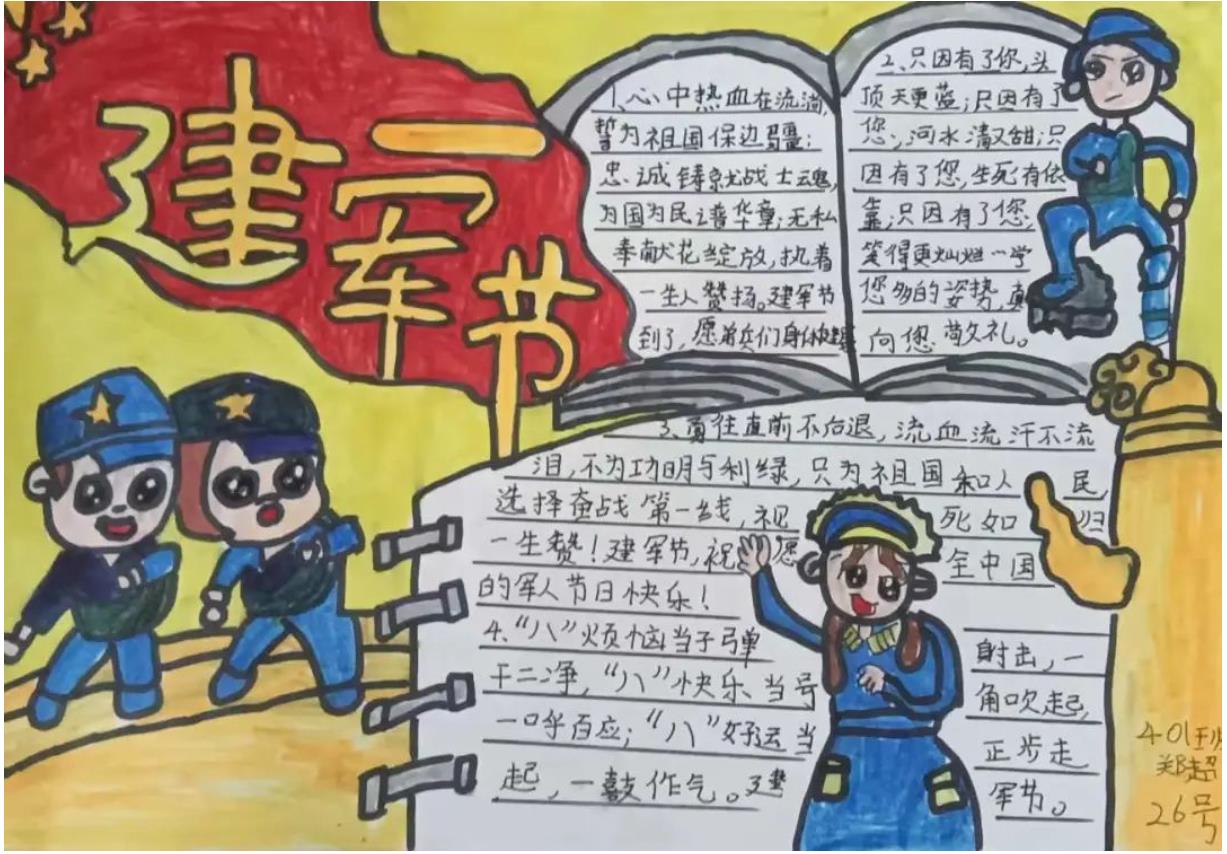 建军节
1、心中热血在流淌,
誓为祖国保边疆;
忠诚铸就战士魂,
为国为民谱华章;无私
奉献花绽放,执着
一生人赞扬。建军节
到了,愿弟兵们身体健康
2、只因有了你,头
顶天更蓝;只因有了
您,河水清又甜;只
因有了您,生死有依
靠;只因有了您,
笑得更灿烂一学
您多的姿势,真
向您敬礼。
3、勇往直前不后退,流血流汗不流
泪,不为功明与利绿,只为祖国和人民,
选择奋战第一线,视死如归
一生赞!建军节,祝愿全中国
的军人节日快乐!
4、“八”烦恼当子弹射击,一
干二净,“八”快乐当号角吹起,
一呼百应;“八”好运当正步走
起,一鼓作气。建军节。
401班
郑超
26号